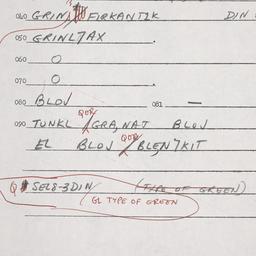 040 GRIN FIRKANT2K DIN
050 GRINL7AX
060 O
070 O
080 BLOJ 081 —
090 TUNKL QOR/GRA,NAT BLOJ
EL BLOJ QOR/BLEN7KIT
Q SEL8-3DIN (TYPE OF GREEN)
/GL TYPE OF GREEN